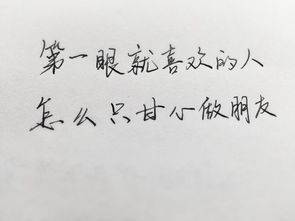 第一眼就喜欢的人
怎么只甘小做朋友